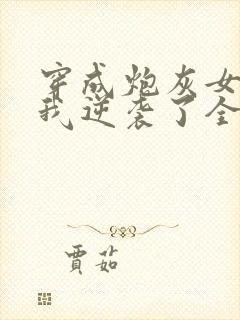 穿成炮灰女
我逆袭了全
賈茹